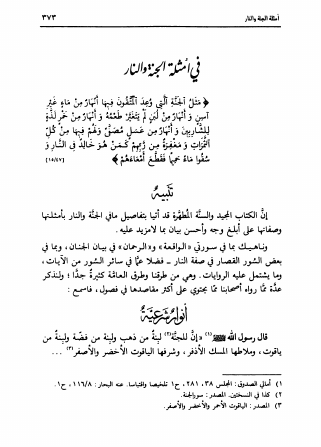 أمثلة الجنة والنار ٣٧٣
في أمثلة الجنة والنار
﴿ مَثَلُ الجَنَّةِ الَّتِي وُعِدَ المُتَّقُونَ فِيهَا أَنْهَارٌ مِنْ مَاءٍ غَيْرِ
آسِنٍ وَ أَنْهَارٌ مِنْ لَبَنٍ لَمْ يَتَغَيَّرْ طَعْمُهُ وَ أَنْهَارٌ مِنْ خَمْرٍ لَذَّةٍ
لِلشَّارِبِينَ وَ أَنْهَارٌ مِنْ عَسَلٍ مُصَفًّى وَلَهُمْ فِيهَا مِنْ كُلِّ
الثَّمَرَاتِ وَ مَغْفِرَةٌ مِنْ رَبِّهِمْ كَمَنْ هُوَ خَالِدٌ فِي النَّارِ وَ
سُقُوا مَاءً حَمِيمًا فَقَطَّعَ أَمْعَاءَهُمْ ﴾ [١٥/٤٧]
تنبيه
إنّ الكتاب المجيد والسنَّة المُطهَّرة قد أتيا بتفاصيل مافي الجنَّة والنار بأمثلتها
وصفاتها على أبلغ وجه وأحسن بيان بما لامزيد عليه.
وناهيك بما في سورتي «الواقعة» و«الرحمان» في بيان الجنان، وبما في
بعض السُور القصار في صفة النار - فضلا عمّا في سائر السُور من الآيات،
وما يشتمل عليه الروايات. وهي من طرقنا وطرق العامَّة كثيرةٌ جدًّا؛ ولنذكر
عدَّة ممَّا رواه أصحابنا ممّا يحتوي على أكثر مقاصدها في فصول، فاسمع :
أنوار شرعية
قال رسول الله ﷺ (١) «إنَّ للجنَّة(٢) لَبِنة من ذهب ولبِنة من فضّة ولبِنة من
ياقوت، وملاطها المسك الأذفر، وشرفها الياقوت الأحمر والأخضر والأصفر(٣) ...
١) أمالي الصدوق: المجلس ٣٨، ٢٨١، ح١ تلخيصا واقتباسا. عنه البحار: ١١٦/٨، ح١.
٢) كذا في النسختين. المصدر: سورالجنة.
٣) المصدر: الياقوت الأحمر والأخضر والأصفر.